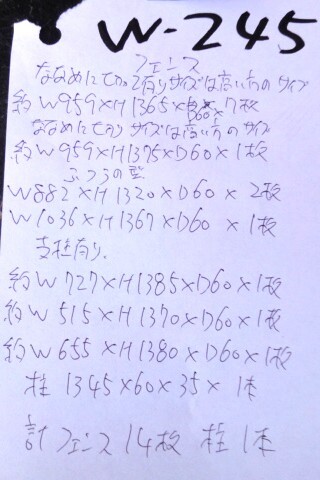 W-245
フェンス
ななめにカット有りサイズは高い方のサイズ
約W959×H1365×D60×7枚
ななめにカット サイズは高い方のサイズ
約W959×H1375×D60×1枚
ふつうの型
W882×H1320×D60×2枚
W1036×H1367×D60×1枚
支柱有り.
約W727×H1385×D60×1枚
約W515×H1370×D60×1枚
約W655×H1380×D60×1枚
柱 1345×60×35×1本
計 フェンス14枚 柱1本